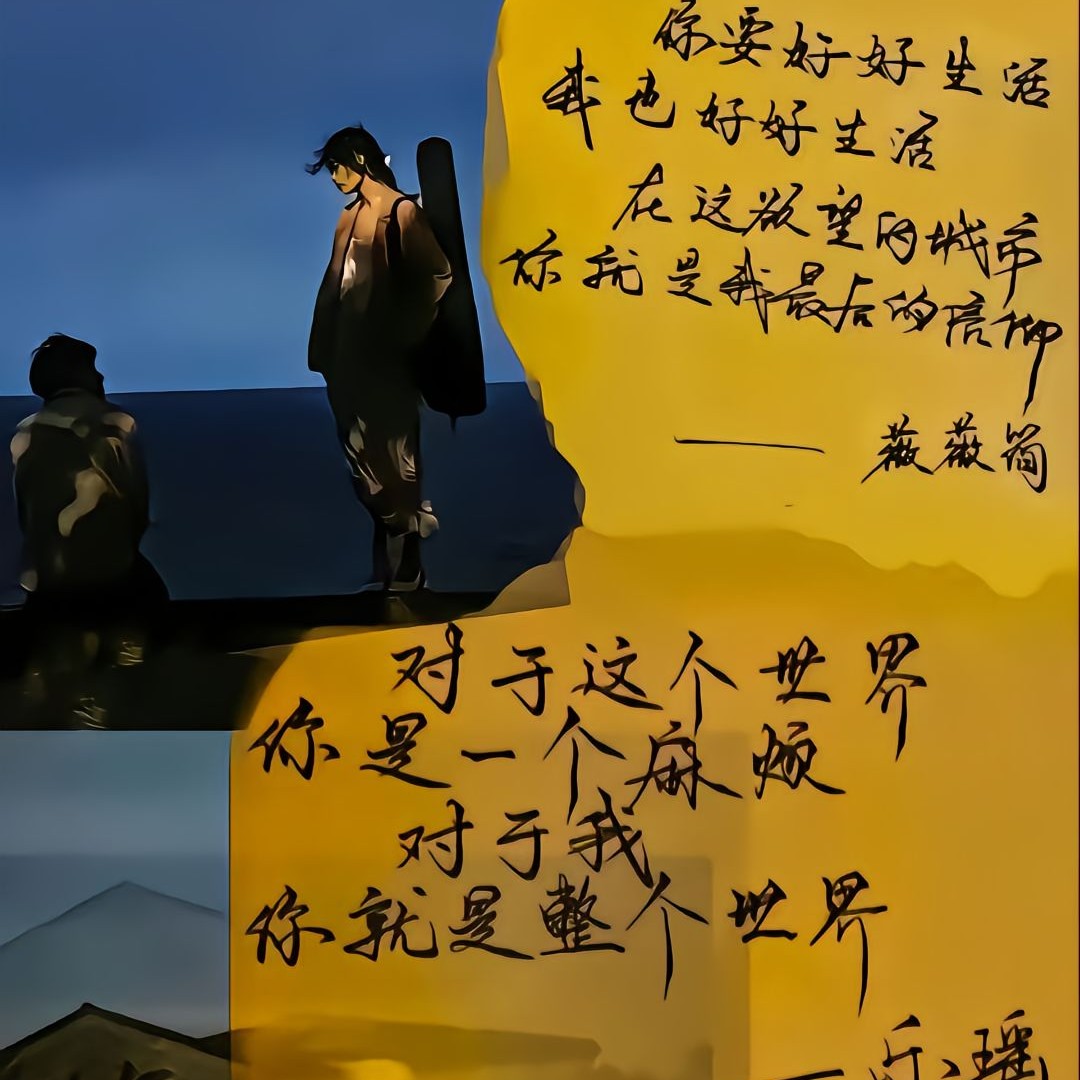 你要好好生活
我也好好生活
在这欲望的城市
你就是我最后的信仰
——薇薇简
对于这个世界
你是一个麻烦
对于我
你就是整个世界
—乐瑶